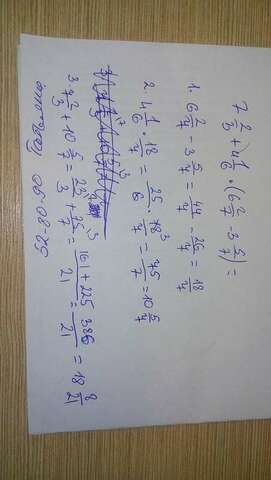 7 2/3 + 4 1/6 · (6 2/7 - 3 5/7) =
1. 6 2/7 - 3 5/7 = 44/7 - 26/7 = 18/7
2. 4 1/6 · 18/7 = 25/6 · 18³/7 = 75/7 = 10 5/7
3. 7 2/3 + 10 5/7 = 23/3 + 75/7 = 161 + 225/21 = 386/21 = 18 8/21
52-80-90